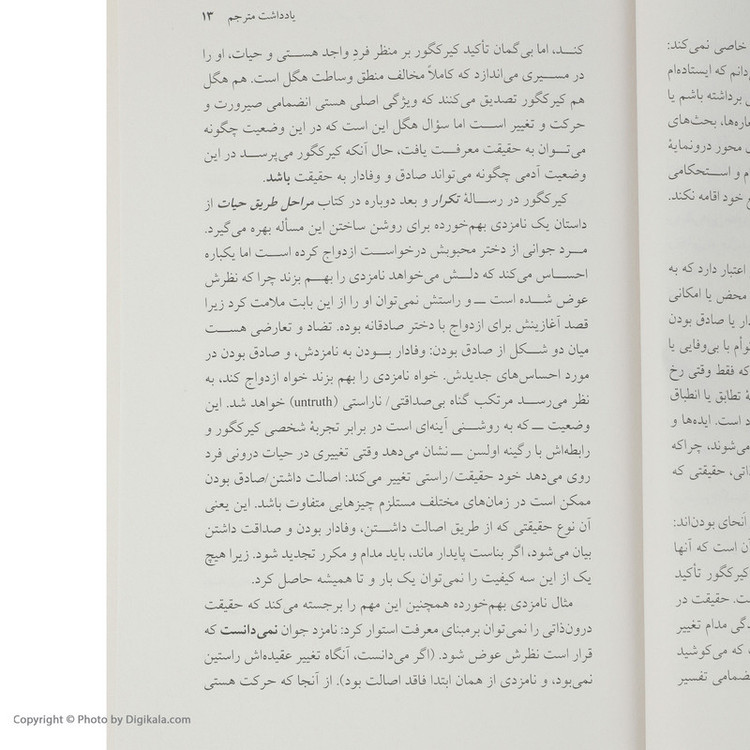 یادداشت مترجم ۱۳
کنـــد، اما بی‌گمان تأکید کیرکگور بر منظر فردِ واجد هستـــی و حیات، او را
در مسیـــری می‌اندازد که کاملاً مخالف منطق وساطت هگل است. هم هگل
هم کیرکگور تصدیق می‌کنند که ویژگی اصلی هستی انضمامی صیرورت و
حرکت و تغییر اســـت اما سؤال هگل این است که در این وضعیت چگونه
می‌تـــوان به حقیقت معرفـــت یافت، حال آنکه کیرکگور می‌پرســـد در این
وضعیت آدمی چگونه می‌تواند صادق و وفادار به حقیقت باشد.
کیرکگور در رســـالهٔ تکرار و بعد دوباره در کتاب مراحل طریق حیات از
داستان یک نامزدی بهم‌خورده برای روشن ساختن این مسأله بهره می‌گیرد.
مـــرد جوانی از دختر محبوبش درخواســـت ازدواج کرده اســـت اما یکباره
احســـاس می‌کند که دلـــش می‌خواهد نامزدی را بهـــم بزند چرا که نظرش
عوض شـــده است ـــ و راستش نمی‌توان او را از این بابت ملامت کرد زیرا
قصد آغازینش برای ازدواج با دختر صادقانه بوده. تضاد و تعارضی هســـت
میان دو شـــکل از صادق بودن: وفادار بـــودن به نامزدش، و صادق بودن در
مورد احساس‌های جدیدش. خواه نامزدی را بهم بزند خواه ازدواج کند، به
نظر می‌رســـد مرتکب گناه بی‌صداقتی/ ناراستی (untruth) خواهد شد. این
وضعیت ـــ که به روشـــنی آینه‌ای است در برابر تجربهٔ شخصی کیرکگور و
رابطه‌اش با رگینه اولسن ـــ نشان می‌دهد وقتی تغییری در حیات درونی فرد
روی می‌دهد خود حقیقت/راستی تغییر می‌کند: اصالت داشتن/صادق بودن
ممکن است در زمان‌های مختلف مستلزم چیزهایی متفاوت باشد. این یعنی
آن نوع حقیقتی که از طریق اصالت داشـــتن، وفادار بودن و صداقت داشتن
بیان می‌شود، اگر بناست پایدار ماند، باید مدام و مکرر تجدید شود. زیرا هیچ
یک از این سه کیفیت را نمی‌توان یک بار و تا همیشه حاصل کرد.
مثال نامزدی بهم‌خورده همچنین این مهم را برجسته می‌کند که حقیقت
درون‌ذاتی را نمی‌توان برمبنای معرفت استوار کرد: نامزد جوان نمی‌دانست که
قرار است نظرش عوض شود. (اگر می‌دانست، آنگاه تغییر عقیده‌اش راستین
نمی‌بود، و نامزدی از همان ابتدا فاقد اصالت بود). از آنجا که حرکت هستی
خاصی نمی‌کند:
دانم که ایستاده‌ام
برداشته باشم یا
عاره‌ها، بحث‌های
محور درونمایهٔ
م و اســـتحکامی
خود اقامه نکند.
اعتبار دارد که به
محض یا امکانی
دار یا صادق بودن
توأم با بی‌وفایی یا
که فقط وقتی رخ
تطابق یا انطباق
د است. ایده‌ها و
می‌شوند، چراکه
ذاتی، حقیقتی که
أنحای بودن‌اند:
آن است که آنها
کیرکگور تأکید
ت. حقیقت در
دگی مدام تغییر
که می‌کوشید
نضمامی تفسیر
Copyright © Photo by Digikala.com